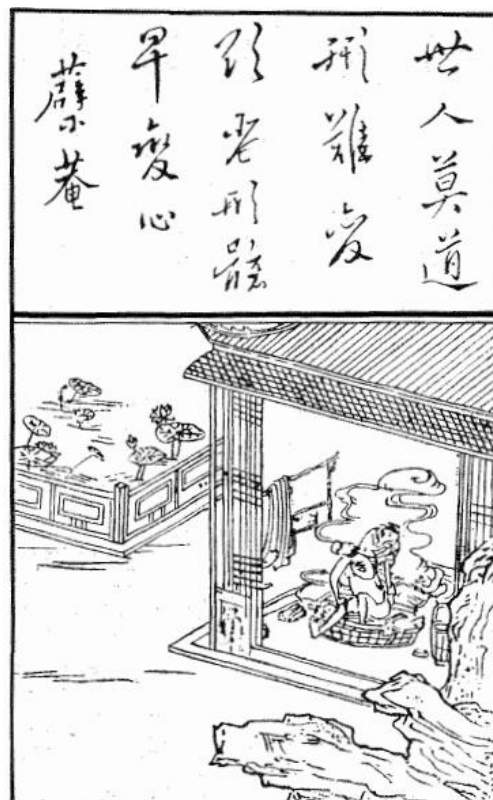 世人莫道
形難變
欲變形骸
早變心
蘗菴